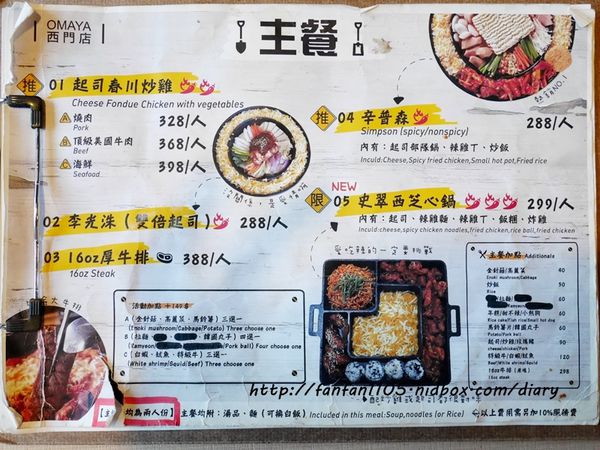 OMAYA
西門店
主餐
推
01 起司春川炒雞
Cheese Fondue Chicken with vegetables
A 燒肉 328/人
Pork
B 頂級美國牛肉 368/人
Beef
C 海鮮 398/人
Seafood
02 李光洙(雙倍起司) 288/人
03 16oz厚牛排 388/人
16oz Steak
熱銷NO.1
推
04 辛普森 288/人
Simpson (spicy/nonspicy)
內有:起司部隊鍋、辣雞丁、炒飯
Includ:Cheese,Spicy fried chicken,Small hot pot,Fried rice
NEW
限
05 史翠西芝心鍋 299/人
內有:起司、辣雞麵、辣雞丁、飯糰、炸雞
Includ:cheese,spicy chicken noodles,fried chicken,rice ball,fried chicken
愛吃辣的一定要挑戰
主餐加點 Additionals
金針菇/高麗菜 40
Enoki mushroom/Cabbage
炒飯 50
Rice
60
年糕/甜不辣/小熱狗 60
Rice cake/Fish rice/Small hot dog
馬鈴薯片/韓國丸子 60
Potato/Pork ball
起司/炒雞/拉瑪豬 90
cheese/chicken/Pork
特級牛/白蝦/魷魚 120
Beef/White shrimp/Squid
16oz牛排 298
16oz steak
活動加點 +149
A(金針菇、高麗菜、馬鈴薯)三選一
(Enoki mushroom/Cabbage/Potato) Three choose one
B(拉麵、韓國丸子)四選一
/Pork ball) Four choose one
C(白蝦、魷魚、特級牛)三選一
(White shrimp/Squid/Beef) Three choose one
http://fanfan1103.nidbox.com/diary
均為兩人份】 主餐均附:湯品、麵(可換白飯) Included in this meal:Soup,noodles (or Rice) 以上費用需另加10%服務費